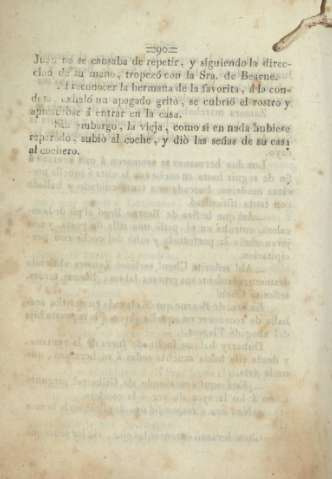 =90=
Juan no se cansaba de repetir, y siguiendo la direc-
cion de su mano, tropezó con la Sra. de Bearne.
Al reconocer la hermana de la favorita, á la con-
desa, exhaló un apagado grito, se cubrió el rostro y
á entrar en la casa.
Sin embargo, la vieja, como si en nada hubiese
reparado, subió al coche, y dió las señas de su casa
al cochero.